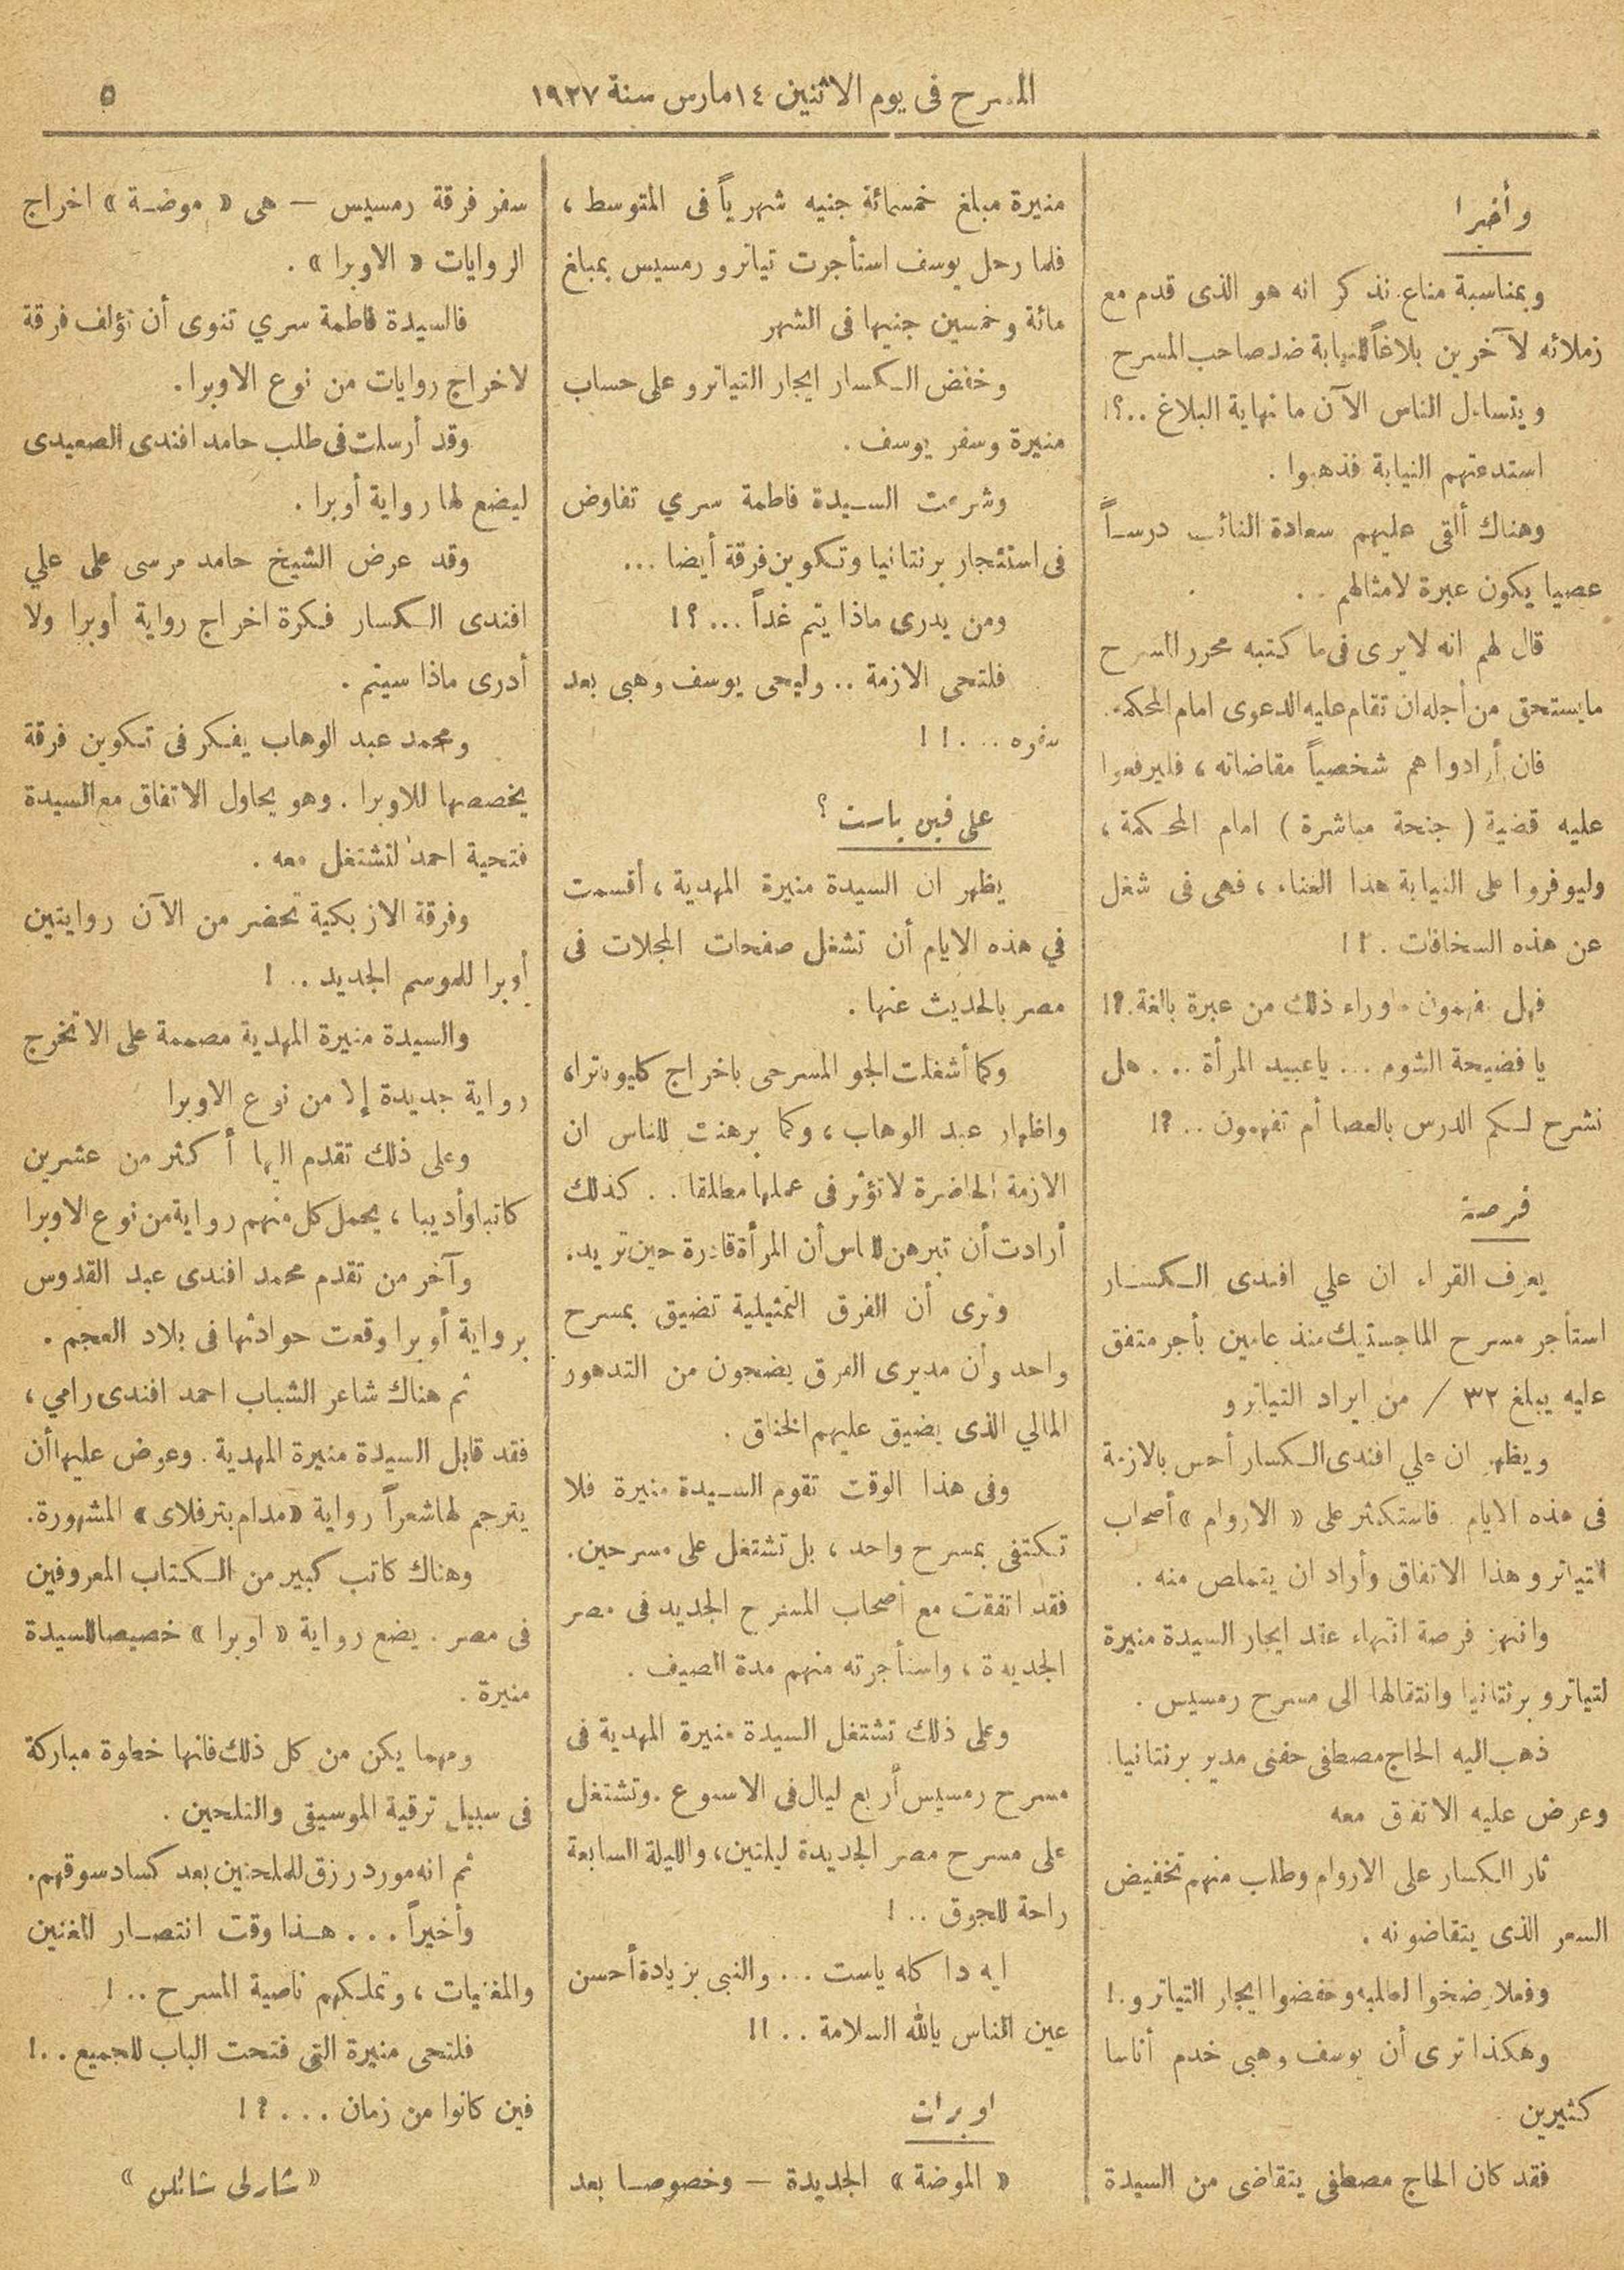 المسرح فى يوم الاثنين ١٤ مارس سنة ١٩٢٧
٥
وأخيرا
وبمناسبة مناع. نذكر انه هو الذى قدم مع
زملائه لآخرين بلاغاً للنيابة ضد صاحب المسرح
ويتساءل الناس الآن ما نهاية البلاغ ..؟!
استدعتهم النيابة فذهبوا .
وهناك ألقى عليهم سعادة النائب درساً
عصيا يكون عبرة لامثالهم . .
قال لهم انه لايرى فى ما كتبه محرر المسرح
مايستحق من أجله ان تقام عليه الدعوى امام المحكمة.
فان أرادوا هم شخصياً مقاضاته ، فليرفعوا
عليه قضية ( جنحة مباشرة ) امام المحكمة ،
وليوفروا على النيابة هذا العناء ، فهى فى شغل
عن هذه السخافات . !!
فهل يفهمون ماوراء ذلك من عبرة بالغة.؟!
يا فضيحة الشوم ... ياعبيد المرأة .. . هل
نشرح لكم الدرس بالعصا أم تفهمون .. ؟!
فرصة
يعرف القراء ان علي افندى الكسار
استأجر مسرح الماجستيك منذ عامين بأجر متفق
عليه يبلغ ٣٢ / من ايراد التياترو
ويظهر ان علي افندى الكسار أحس بالازمة
فى هذه الايام . فاستكثر على « الاروام » أصحاب
التياترو هذا الاتفاق وأراد ان يتملص منه .
وانتهز فرصة انتهاء عقد ايجار السيدة منيرة
لتياترو برنتانيا وانتقالها الى مسرح رمسيس .
ذهب اليه الحاج مصطفى حفنى مدير برنتانيا.
وعرض عليه الاتفق معه
ثار الكسار على الاروام وطلب منهم تخفيض
السعر الذى يتقاضونه .
وفعلا رضخوا لطلبه وخفضوا ايجار التياترو.!
وهكذا ترى أن يوسف وهبى خدم أناسا
كثيرين .
فقد كان الحاج مصطفى يتقاضى من السيدة
منيرة مبلغ خمسمائة جنيه شهرياً فى المتوسط ،
فلما رحل يوسف استأجرت تياترو رمسيس بمبلغ
مائة وخمسين جنيها فى الشهر
وخفض الكسار ايجار التياترو على حساب
منيرة وسفر يوسف .
وشرعت السيدة فاطمة سري تفاوض
فى استئجار برنتانيا وتكوين فرقة أيضا ...
ومن يدرى ماذا يتم غداً ... ؟!
فلتحى الازمة .. وليحى يوسف وهبى بعد
سفره ... . !!
على فين ياست ؟
يظهر ان السيدة منيرة المهدية ، أقسمت
في هذه الايام أن تشغل صفحات المجلات فى
مصر بالحديث عنها .
وكما أشغلت الجو المسرحى باخراج كليوباترا،
واظهار عبد الوهاب ، وكما برهنت للناس ان
الازمة الحاضرة لا تؤثر فى عملها مطلقا . . كذلك
أرادت أن تبرهن للناس أن المرأة قادرة حين تريد.
ونرى أن الفرق التمثيلية تضيق بمسرح
واحد وأن مديرى الفرق يضجون من التدهور
المالي الذى يضيق عليهم الخناق .
وفى هذا الوقت تقوم السيدة منيرة فلا
تكتفى بمسرح واحد ، بل تشتغل على مسرحين.
فقد اتفقت مع أصحاب المسرح الجديد فى مصر
الجديدة ، واستأجرته منهم مدة الصيف .
وعلى ذلك تشتغل السيدة منيرة المهدية فى
مسرح رمسيس أربع ليال فى الاسبوع . وتشتغل
على مسرح مصر الجديدة ليلتين، والليلة السابعة
راحة للجوق .. !
ايه دا كله ياست ... والنبى بزيادة أحسن
عين الناس يالله السلامة . . !!
اوبرات
« الموضة » الجديدة — وخصوصا بعد
سفر فرقة رمسيس — هى « موضة » اخراج
الروايات « الاوبرا » .
فالسيدة فاطمة سري تنوى أن تؤلف فرقة
لاخراج روايات من نوع الاوبرا.
وقد أرسلت فى طلب حامد افندى الصعيدى
ليضع لها رواية أوبرا .
وقد عرض الشيخ حامد مرسى على علي
افندى الكسار فكرة اخراج رواية أوبرا ولا
أدرى ماذا سيتم .
ومحمد عبد الوهاب يفكر فى تكوين فرقة
يخصصها للاوبرا . وهو يحاول الاتفاق مع السيدة
فتحية احمد لتشتغل معه .
وفرقة الازبكية تحضر من الآن روايتين
أوبرا للموسم الجديد .. !
والسيدة منيرة المهدية مصممة على الا تخرج
رواية جديدة إلا من نوع الاوبرا
وعلى ذلك تقدم اليها أكثر من عشرين
كاتبا وأديبا ، يحمل كل منهم رواية من نوع الاوبرا
وآخر من تقدم محمد افندى عبد القدوس
برواية أوبرا وقعت حوادثها فى بلاد العجم .
ثم هناك شاعر الشباب احمد افندى رامي ،
فقد قابل السيدة منيرة المهدية . وعرض عليها أن
يترجم لها شعراً رواية « مدام بترفلاى » المشهورة.
وهناك كاتب كبير من الكتاب المعروفين
فى مصر . يضع رواية « اوبرا » خصيصا للسيدة
منيرة .
ومهما يكن من كل ذلك فانها خطوة مباركة
فى سبيل ترقية الموسيقى والتلحين .
ثم انه مورد رزق للملحنين بعد كساد سوقهم.
وأخيراً ... هذا وقت انتصار المغنين
والمغنيات ، وتملكهم ناصية المسرح .. !
فلتحى منيرة التى فتحت الباب للجميع ..!
فين كانوا من زمان ... . ؟!
« شارلى شابلن »